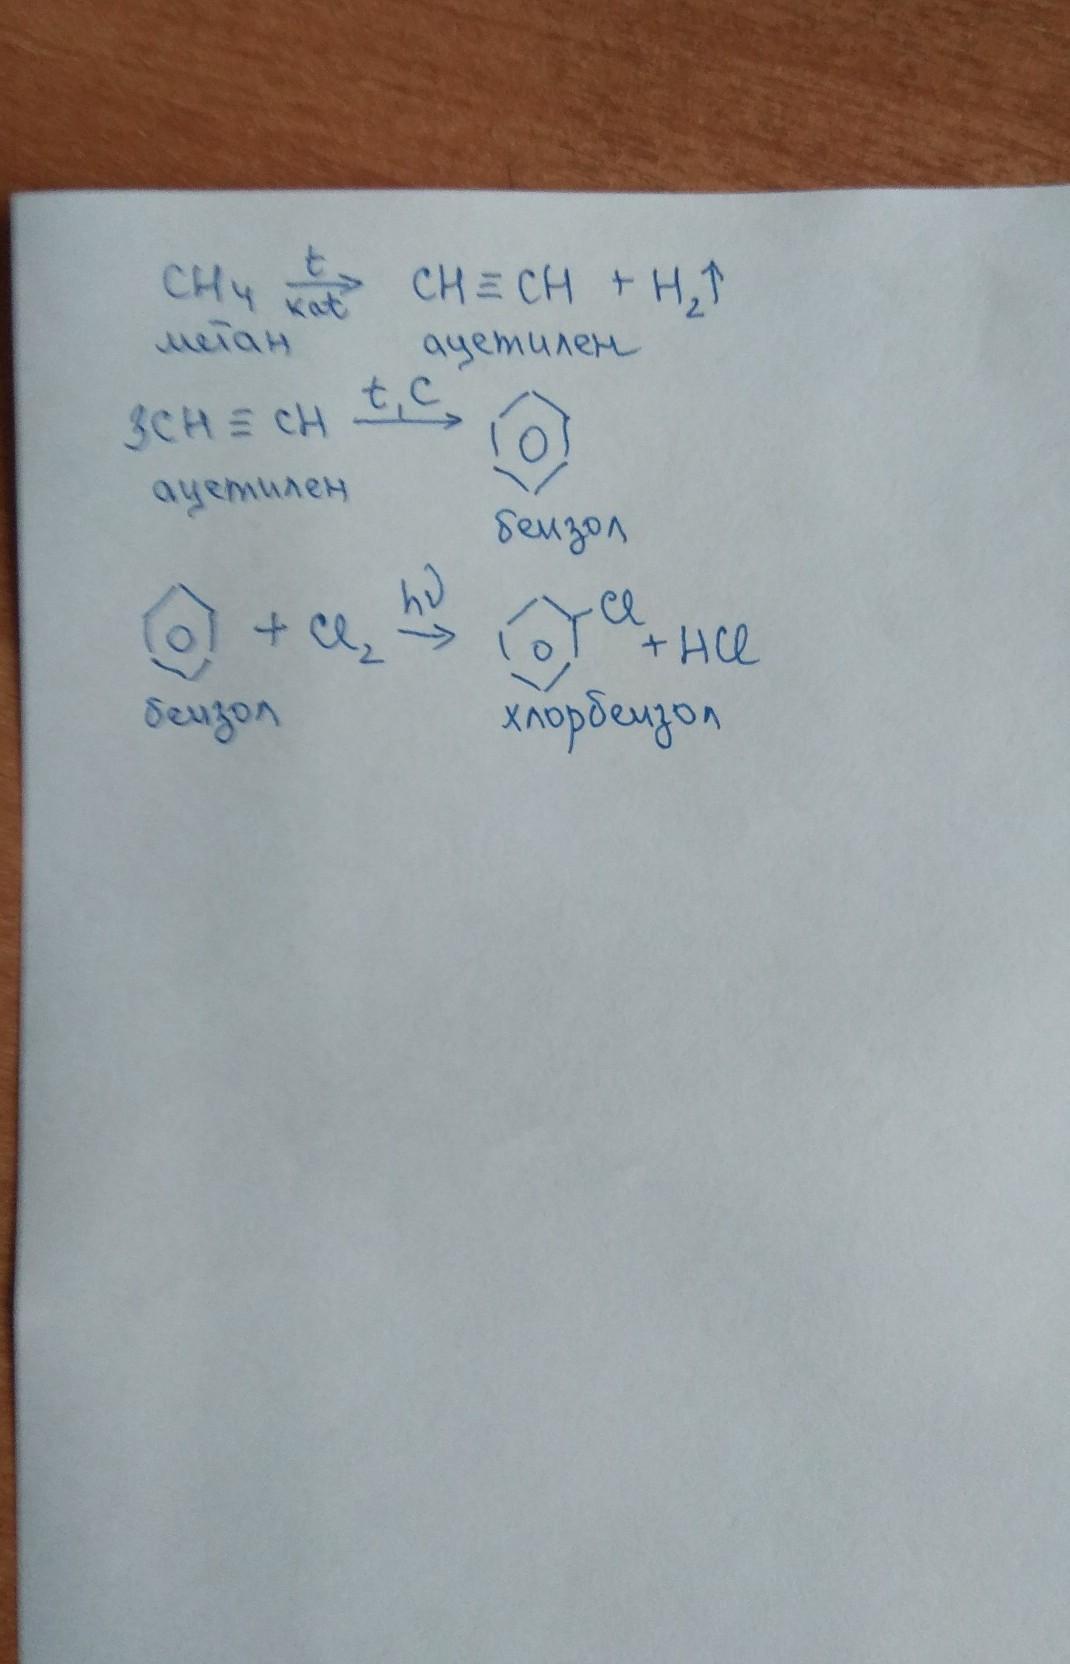 CH₄ t kat → CH≡CH + H₂↑
метан ацетилен
3CH≡CH t, C →
ацетилен
бензол
+ Cl₂ hν → Cl + HCl
бензол хлорбензол